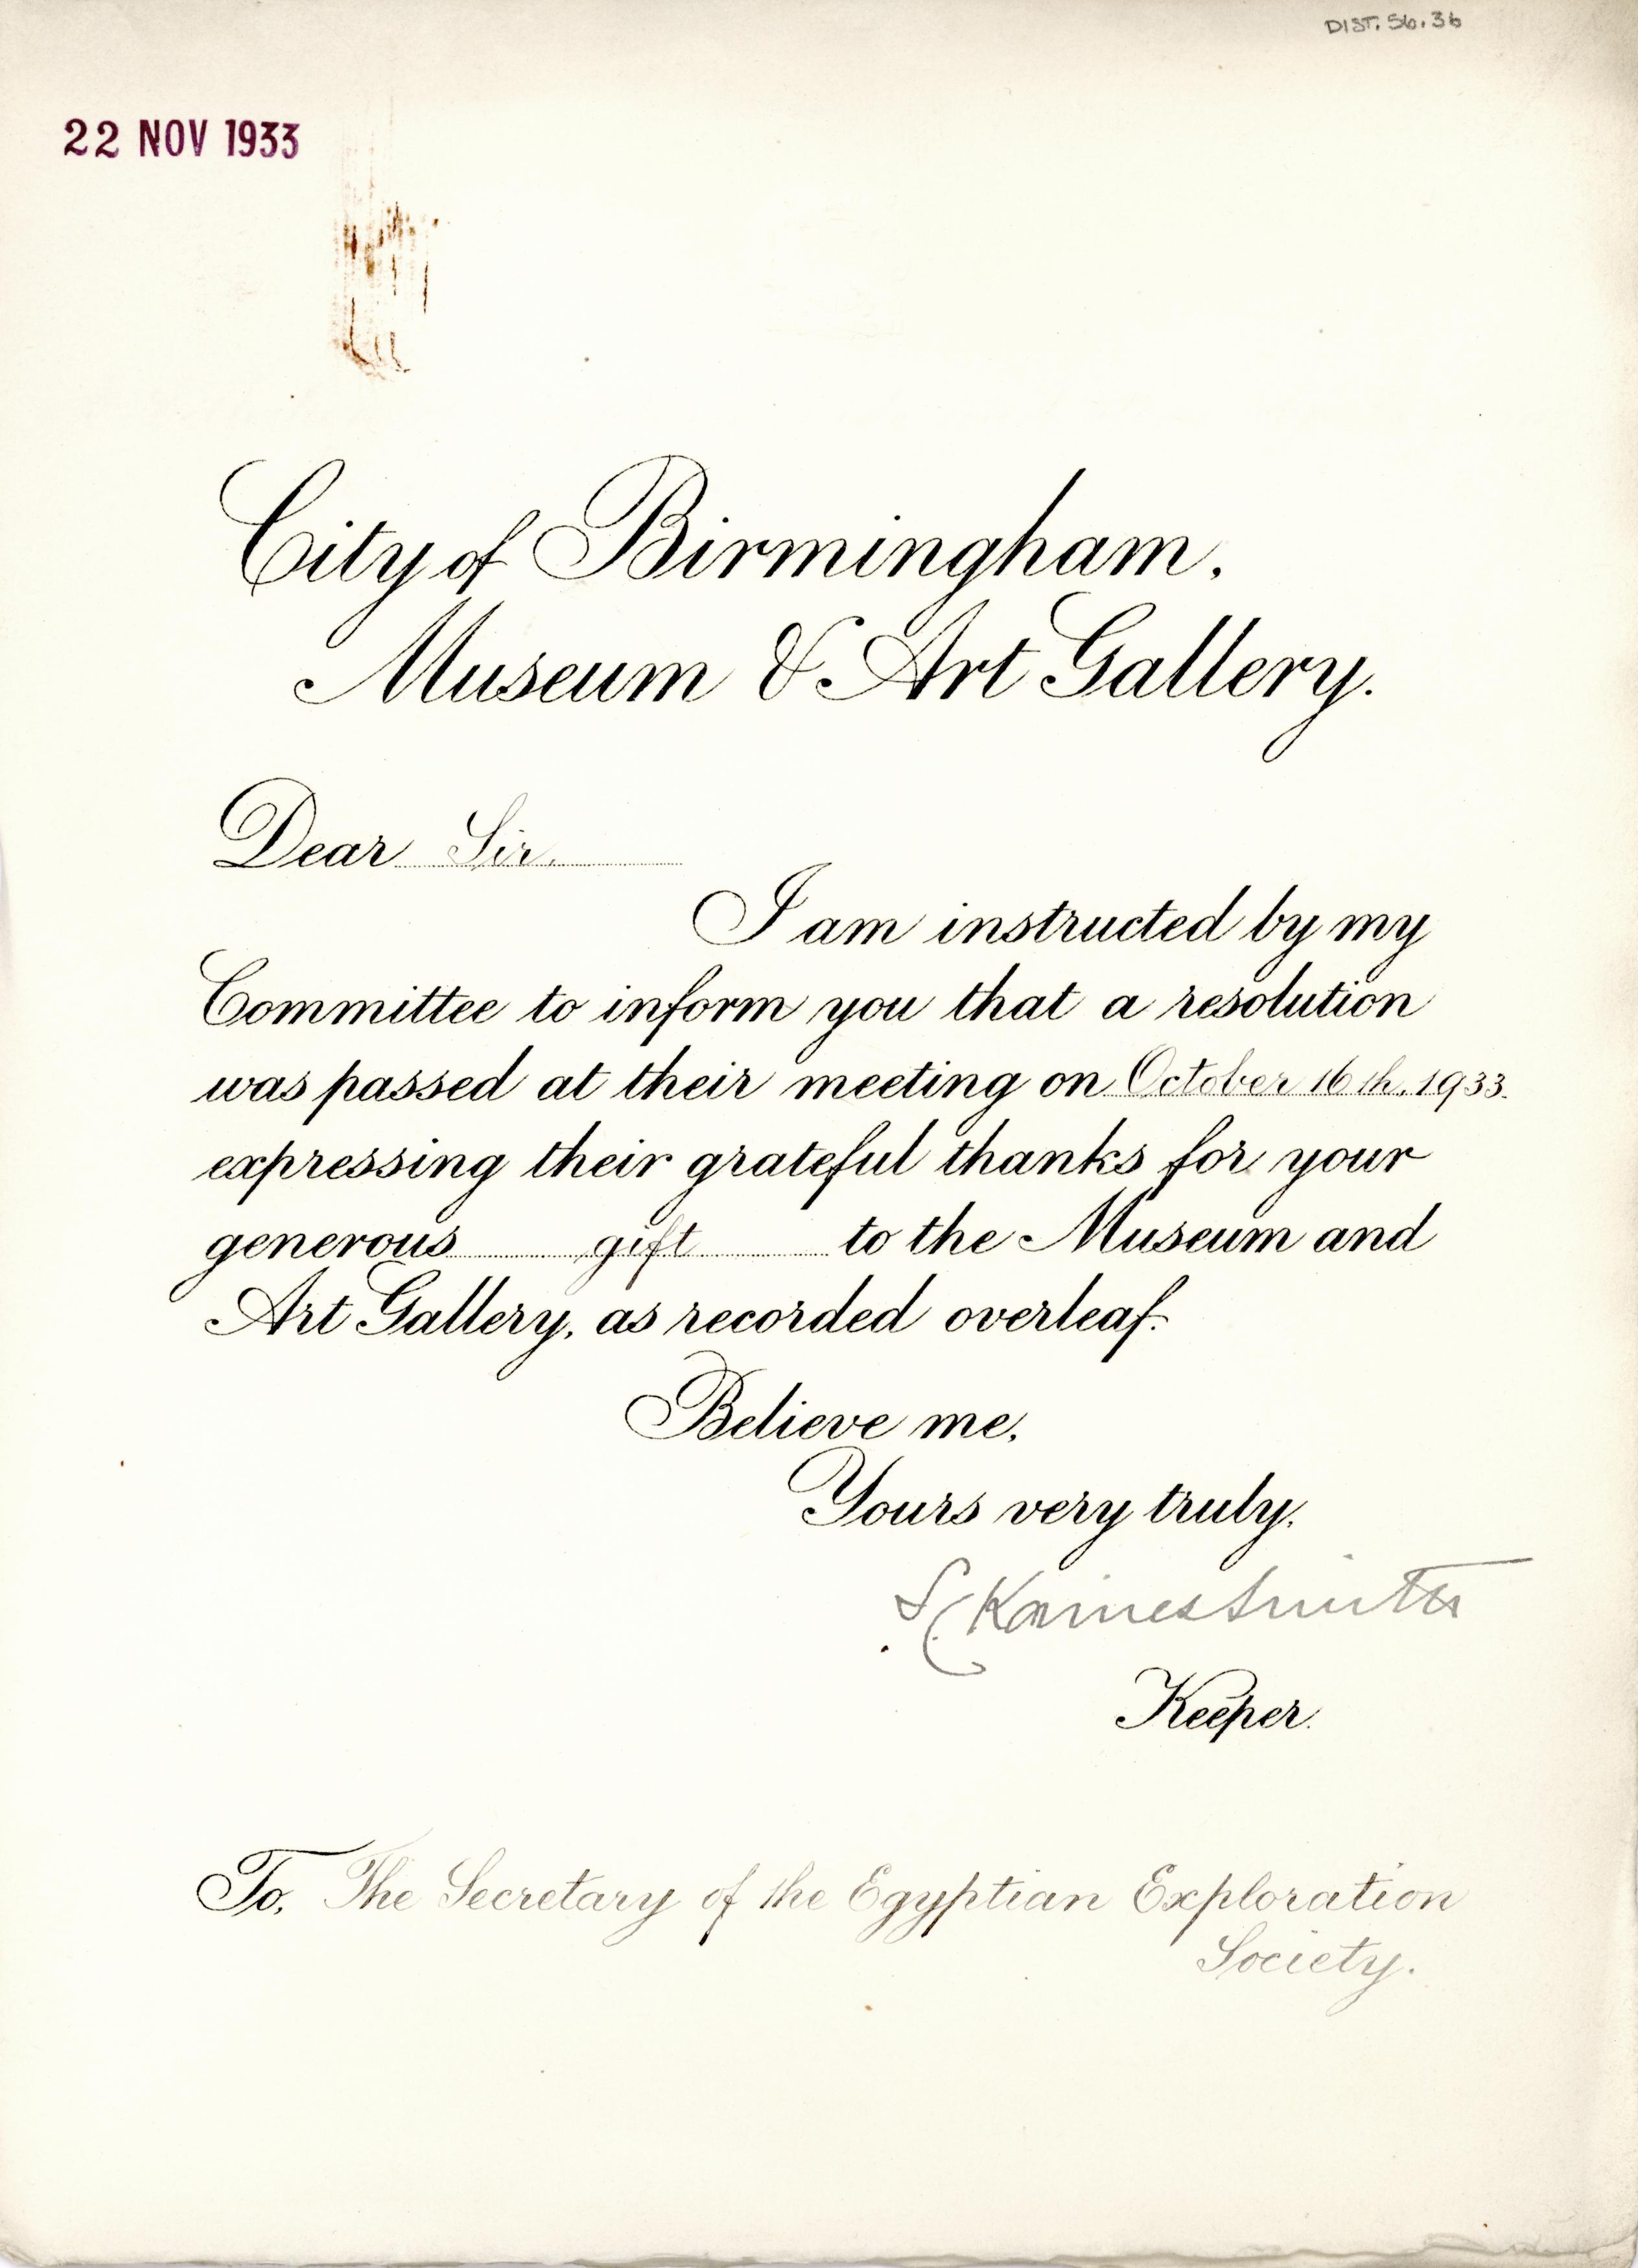 DIST. 56.36
22 NOV 1933
City of Birmingham.
Museum & Art Gallery.
Dear Sir.
I am instructed by my
Committee to inform you that a resolution
was passed at their meeting on October 16th. 1933.
expressing their grateful thanks for your
generous gift to the Museum and
Art Gallery, as recorded overleaf.
Believe me,
Yours very truly,
S. C. Kaines Smith
Keeper.
To, The Secretary of the Egyptian Exploration
Society.